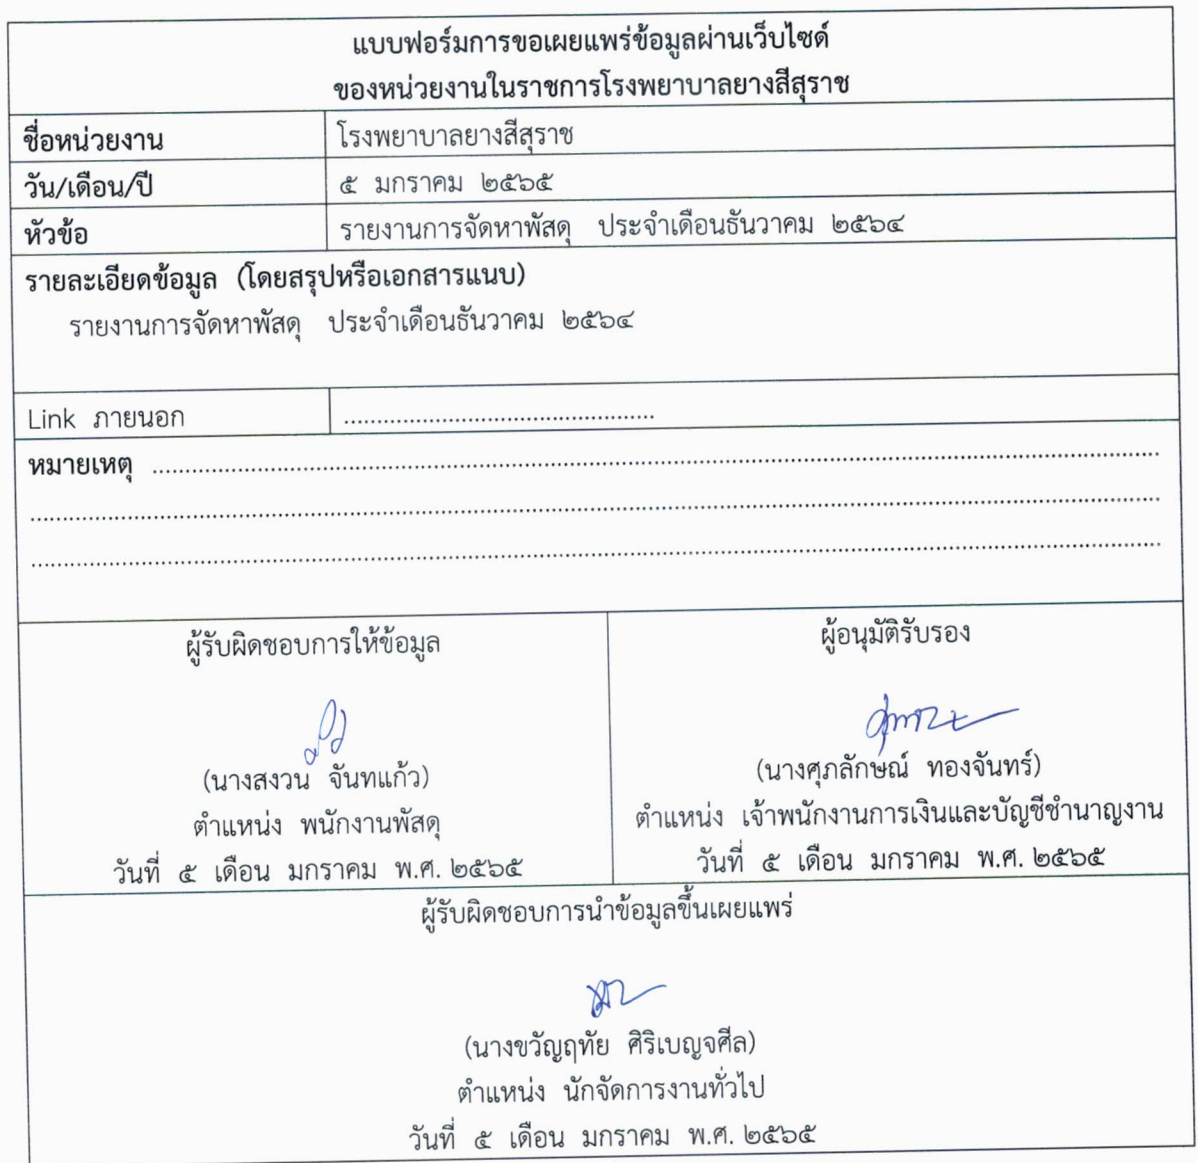 แบบฟอร์มการขอเผยแพร่ข้อมูลผ่านเว็บไซต์
ของหน่วยงานในราชการโรงพยาบาลยางสีสุราช
ชื่อหน่วยงาน โรงพยาบาลยางสีสุราช
วัน/เดือน/ปี ๕ มกราคม ๒๕๖๕
หัวข้อ รายงานการจัดหาพัสดุ ประจำเดือนธันวาคม ๒๕๖๔
รายละเอียดข้อมูล (โดยสรุปหรือเอกสารแนบ)
รายงานการจัดหาพัสดุ ประจำเดือนธันวาคม ๒๕๖๔
Link ภายนอก ................................................
หมายเหตุ ................................................
................................................
................................................
ผู้รับผิดชอบการให้ข้อมูล
(นางสงวน จันทแก้ว)
ตำแหน่ง พนักงานพัสดุ
วันที่ ๕ เดือน มกราคม พ.ศ. ๒๕๖๕
ผู้อนุมัติรับรอง
(นางศุภลักษณ์ ทองจันทร์)
ตำแหน่ง เจ้าพนักงานการเงินและบัญชีชำนาญงาน
วันที่ ๕ เดือน มกราคม พ.ศ. ๒๕๖๕
ผู้รับผิดชอบการนำข้อมูลขึ้นเผยแพร่
(นางขวัญฤทัย ศิริเบญจศีล)
ตำแหน่ง นักจัดการงานทั่วไป
วันที่ ๕ เดือน มกราคม พ.ศ. ๒๕๖๕